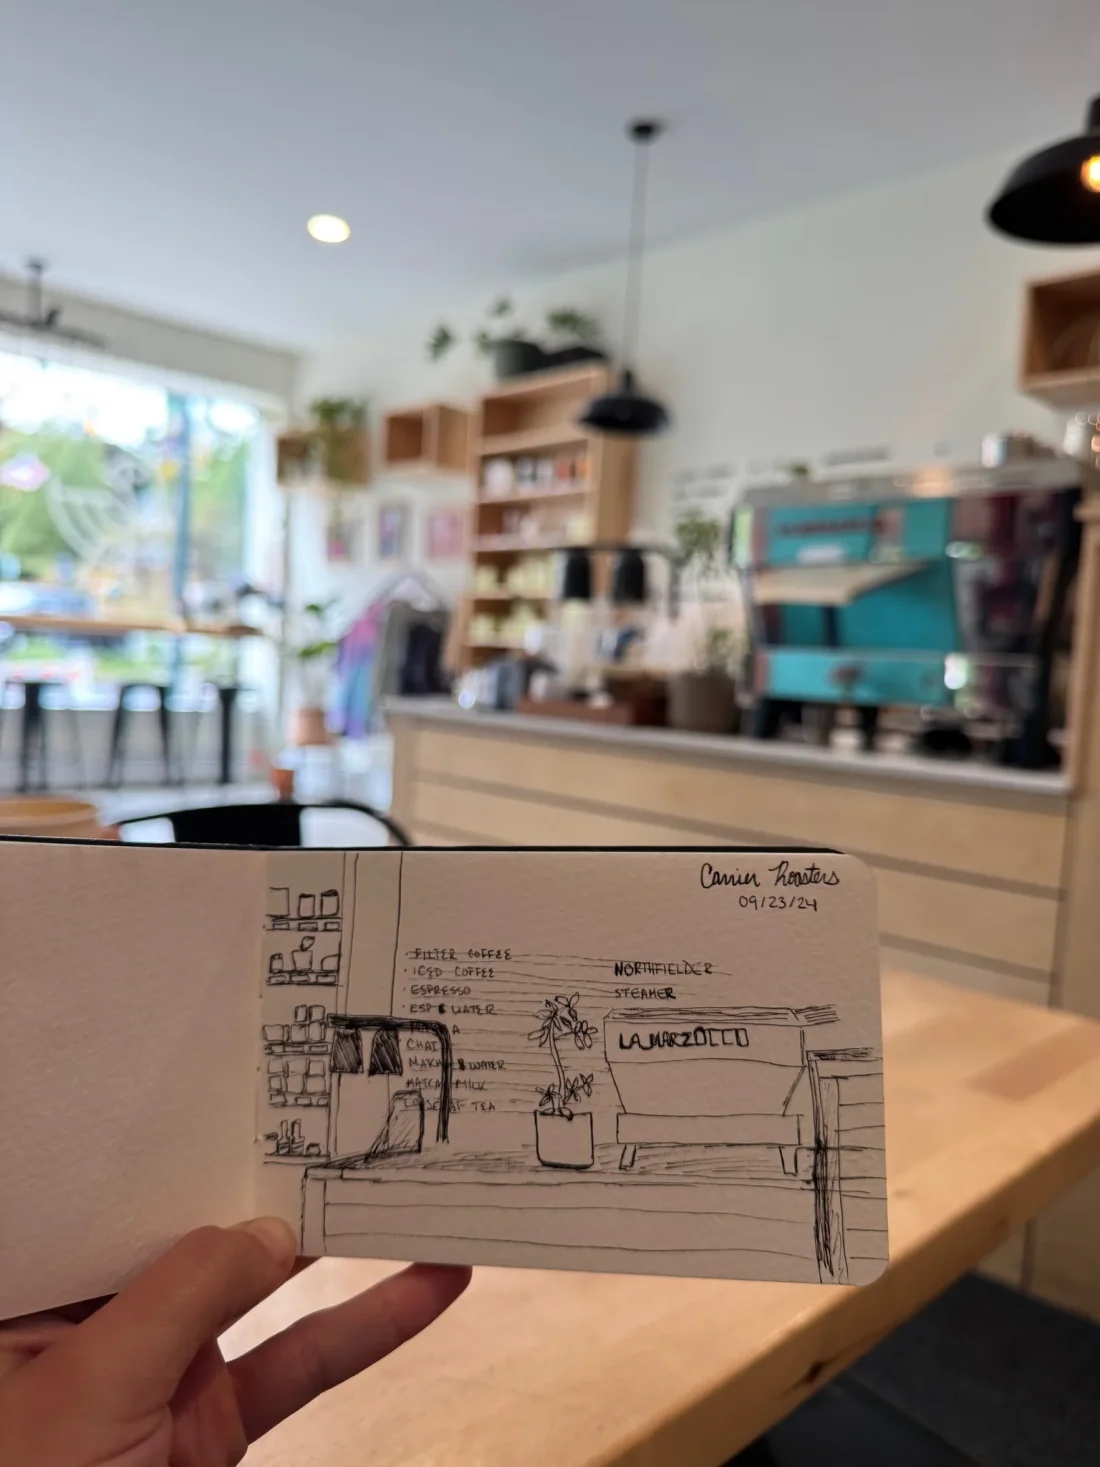 Carrier Roasters
09/23/24
· FILTER COFFEE
· ICED COFFEE
· ESPRESSO
· ESP & WATER
A
CHAI
MATCHA & WATER
MATCA MILK
LOOSE AF TEA
NORTHFIELDER
STEAMER
LA MARZOCCO